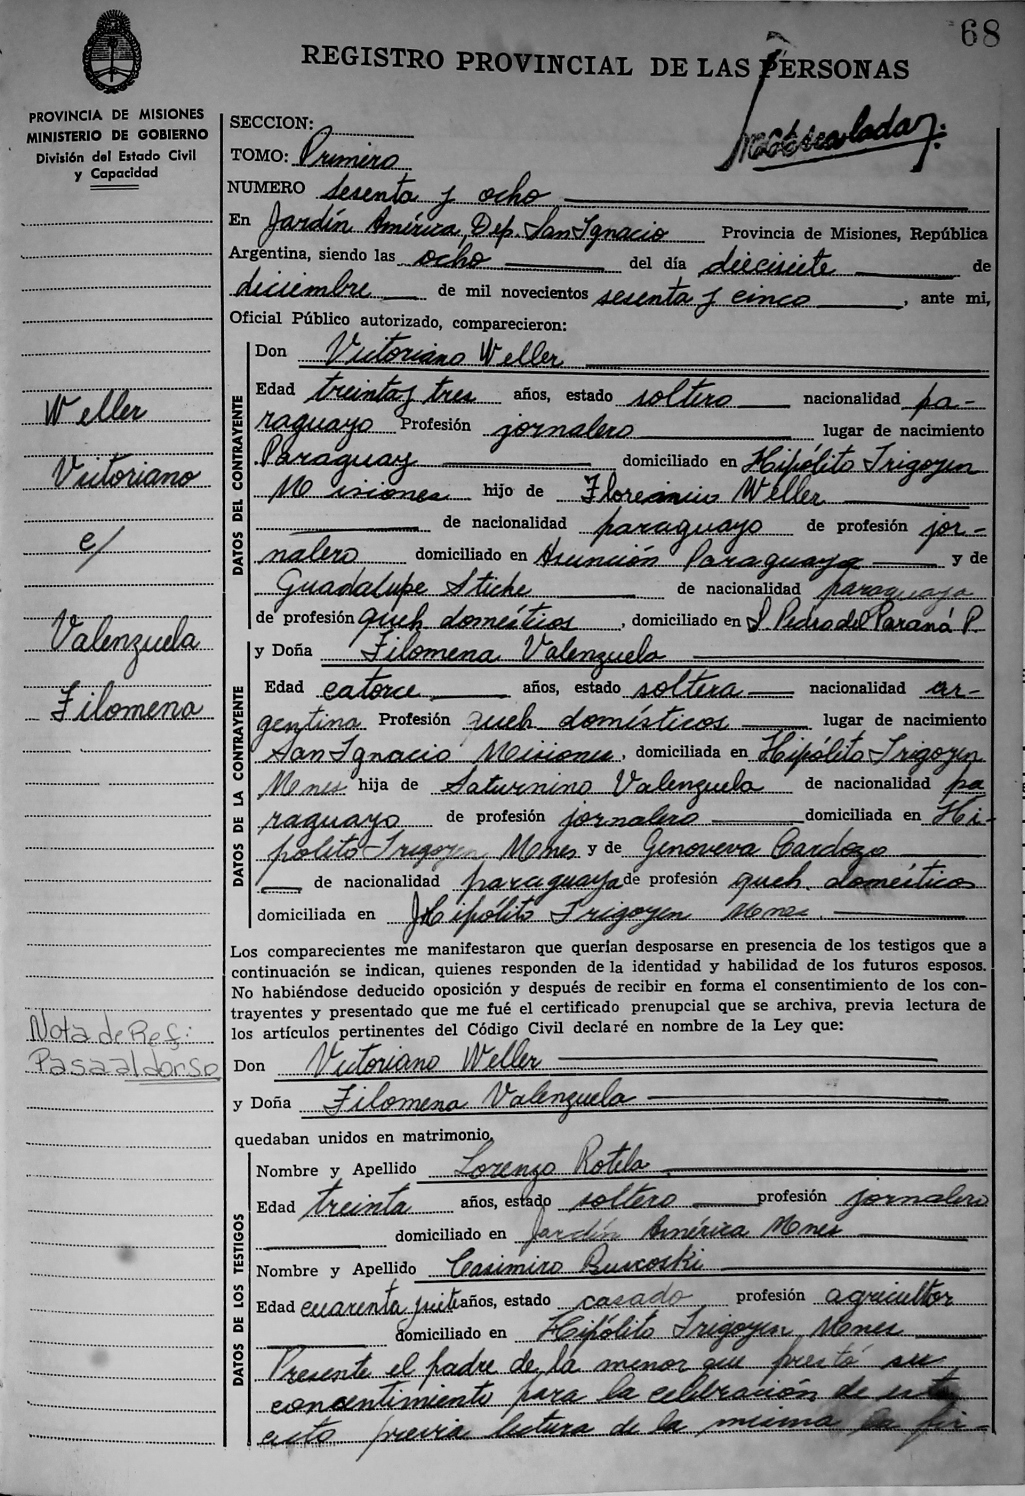 68
REGISTRO PROVINCIAL DE LAS PERSONAS
PROVINCIA DE MISIONES
MINISTERIO DE GOBIERNO
División del Estado Civil
y Capacidad
SECCION:
TOMO: Primero
NUMERO sesenta y ocho
En Jardín América, Dep. San Ignacio Provincia de Misiones, República
Argentina, siendo las ocho del día diecisiete de
diciembre de mil novecientos sesenta y cinco, ante mi,
Oficial Público autorizado, comparecieron:
DATOS DEL CONTRAYENTE
Don Victoriano Weller
Edad treinta y tres años, estado soltero nacionalidad pa-
raguayo Profesión jornalero lugar de nacimiento
Paraguay domiciliado en Hipólito Irigoyen
Misiones hijo de Weller
de nacionalidad paraguayo de profesión jor-
nalero domiciliado en Asunción Paraguay y de
Guadalupe Stiche de nacionalidad paraguaya
de profesión queh. domésticos, domiciliado en S. Pedro del Paraná P.
DATOS DE LA CONTRAYENTE
y Doña Filomena Valenzuela
Edad catorce años, estado soltera nacionalidad ar-
gentina Profesión queh. domésticos lugar de nacimiento
San Ignacio Misiones, domiciliada en Hipólito Irigoyen
Mnes hija de Saturnino Valenzuela de nacionalidad pa
raguayo de profesión jornalero domiciliado en Hi-
pólito Irigoyen Mnes y de Genoveva Cardozo
de nacionalidad paraguaya de profesión queh. domésticos
domiciliada en Hipólito Irigoyen Mnes.
Los comparecientes me manifestaron que querían desposarse en presencia de los testigos que a
continuación se indican, quienes responden de la identidad y habilidad de los futuros esposos.
No habiéndose deducido oposición y después de recibir en forma el consentimiento de los con-
trayentes y presentado que me fué el certificado prenupcial que se archiva, previa lectura de
los artículos pertinentes del Código Civil declaré en nombre de la Ley que:
Don Victoriano Weller
y Doña Filomena Valenzuela
quedaban unidos en matrimonio,
DATOS DE LOS TESTIGOS
Nombre y Apellido Lorenzo Rotela
Edad treinta años, estado soltero profesión jornalero
domiciliado en Jardín América Mnes
Nombre y Apellido Casimiro Buscoski
Edad cuarenta y siete años, estado casado profesión agricultor
domiciliado en Hipólito Irigoyen, Mnes
Presente el padre de la menor que prestó su
concentimiento para la celebración de este
acto previa lectura de la misma la fir-
Weller
Victoriano
c/
Valenzuela
Filomena
Nota de Ref:
Pasa al dorso